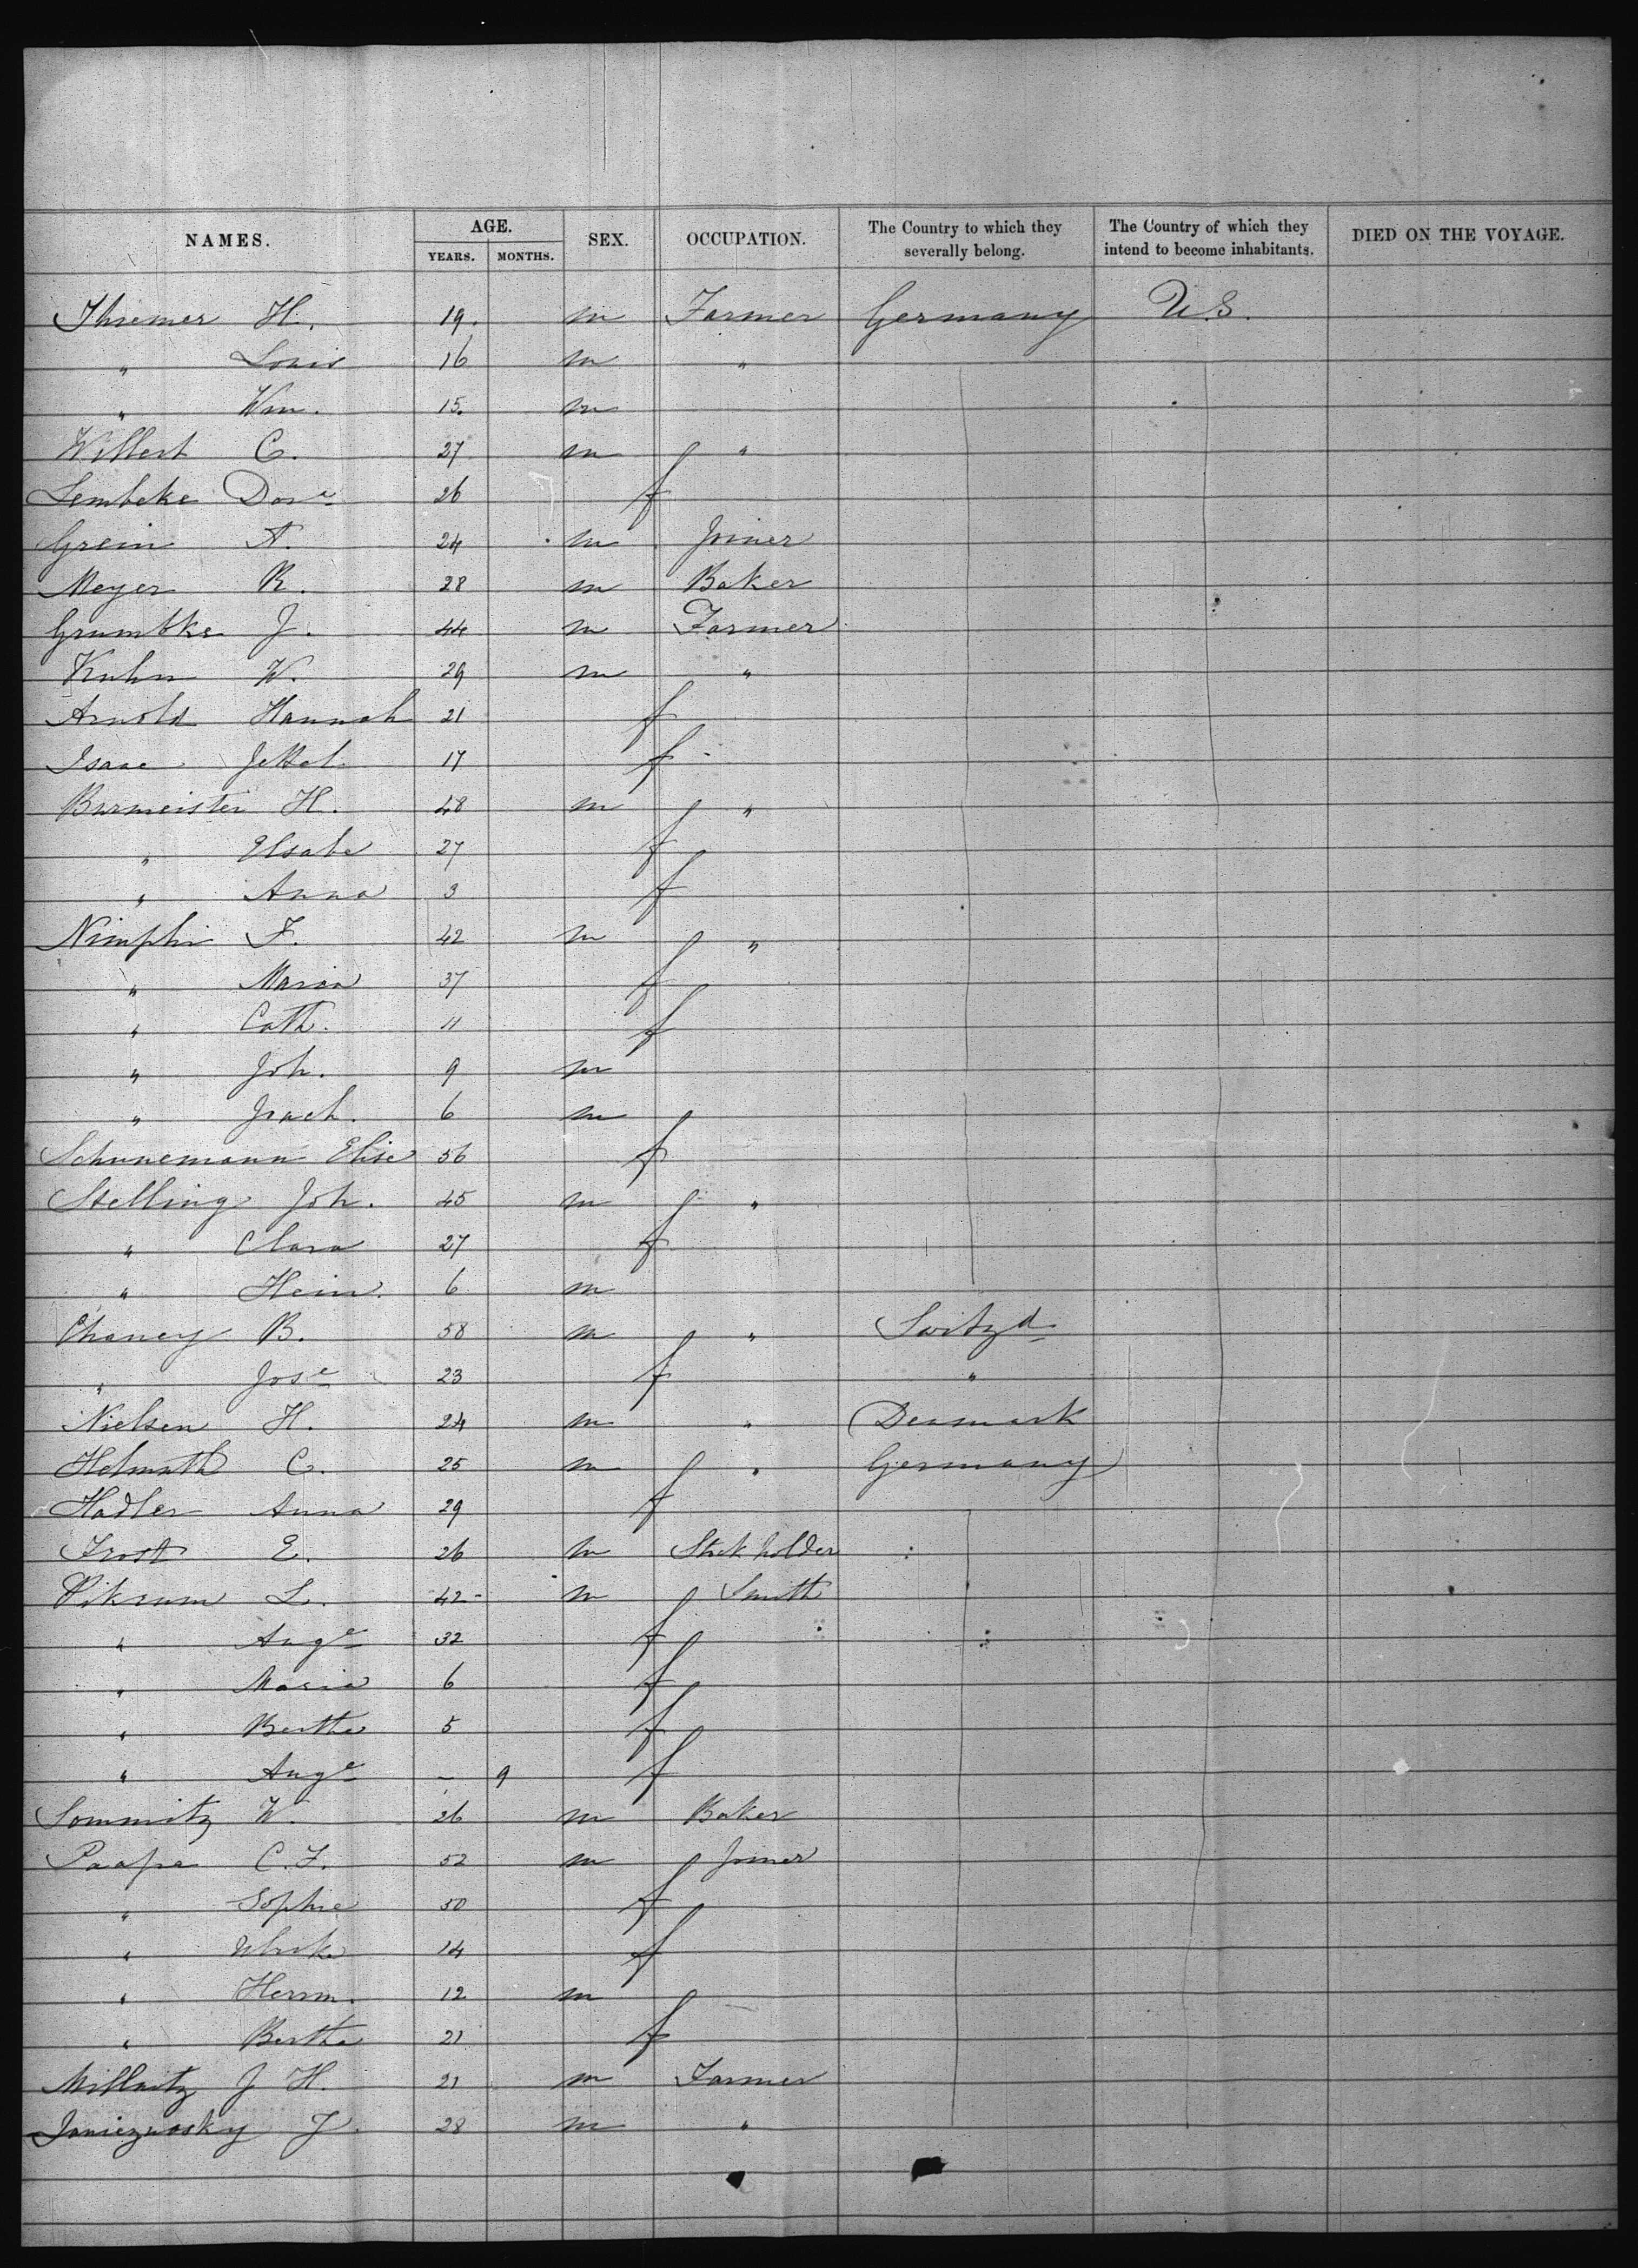 NAMES. AGE. SEX. OCCUPATION. The Country to which they severally belong. The Country of which they intend to become inhabitants. DIED ON THE VOYAGE.
YEARS. MONTHS.
Thiemer H. 19. m Farmer Germany U.S.
" Louis 16 m "
" Wm. 15. m
Willert C. 27 m "
Lembcke Dore 26 f
Grein A. 24 m Joiner
Meyer R. 28 m Baker
Grumbke J. 44 m Farmer
Kuhn W. 29 m "
Arnold Hannah 21 f
Isaac Jettel 17 f
Burmeister H. 48 m "
" Elsabe 27 f
" Anna 3 f
Nimphi F. 42 m "
" Maria 37 f
" Cath. 11 f
" Joh. 9 m
" Joach. 6 m
Schunemann Elise 56 f
Stelling Joh. 45 m "
" Clara 27 f
" Hein. 6 m
Chaney B. 58 m " Switzd
" Jose 23 f "
Nielsen H. 24 m " Denmark
Helmuth C. 25 m " Germany
Hadler Anna 29 f
Frost E. 26 m Stockholder
Piksum L. 42 m Smith
" Auge 32 f
" Maria 6 f
" Bertha 5 f
" Auge – 9 f
Sommitz W. 26 m Baker
Paape C.F. 52 m Joiner
" Sophie 50 f
" Ulrike 14 f
" Herm. 12 m
" Bertha 21 f
Millnitz J H. 21 m Farmer
J. 28 m "